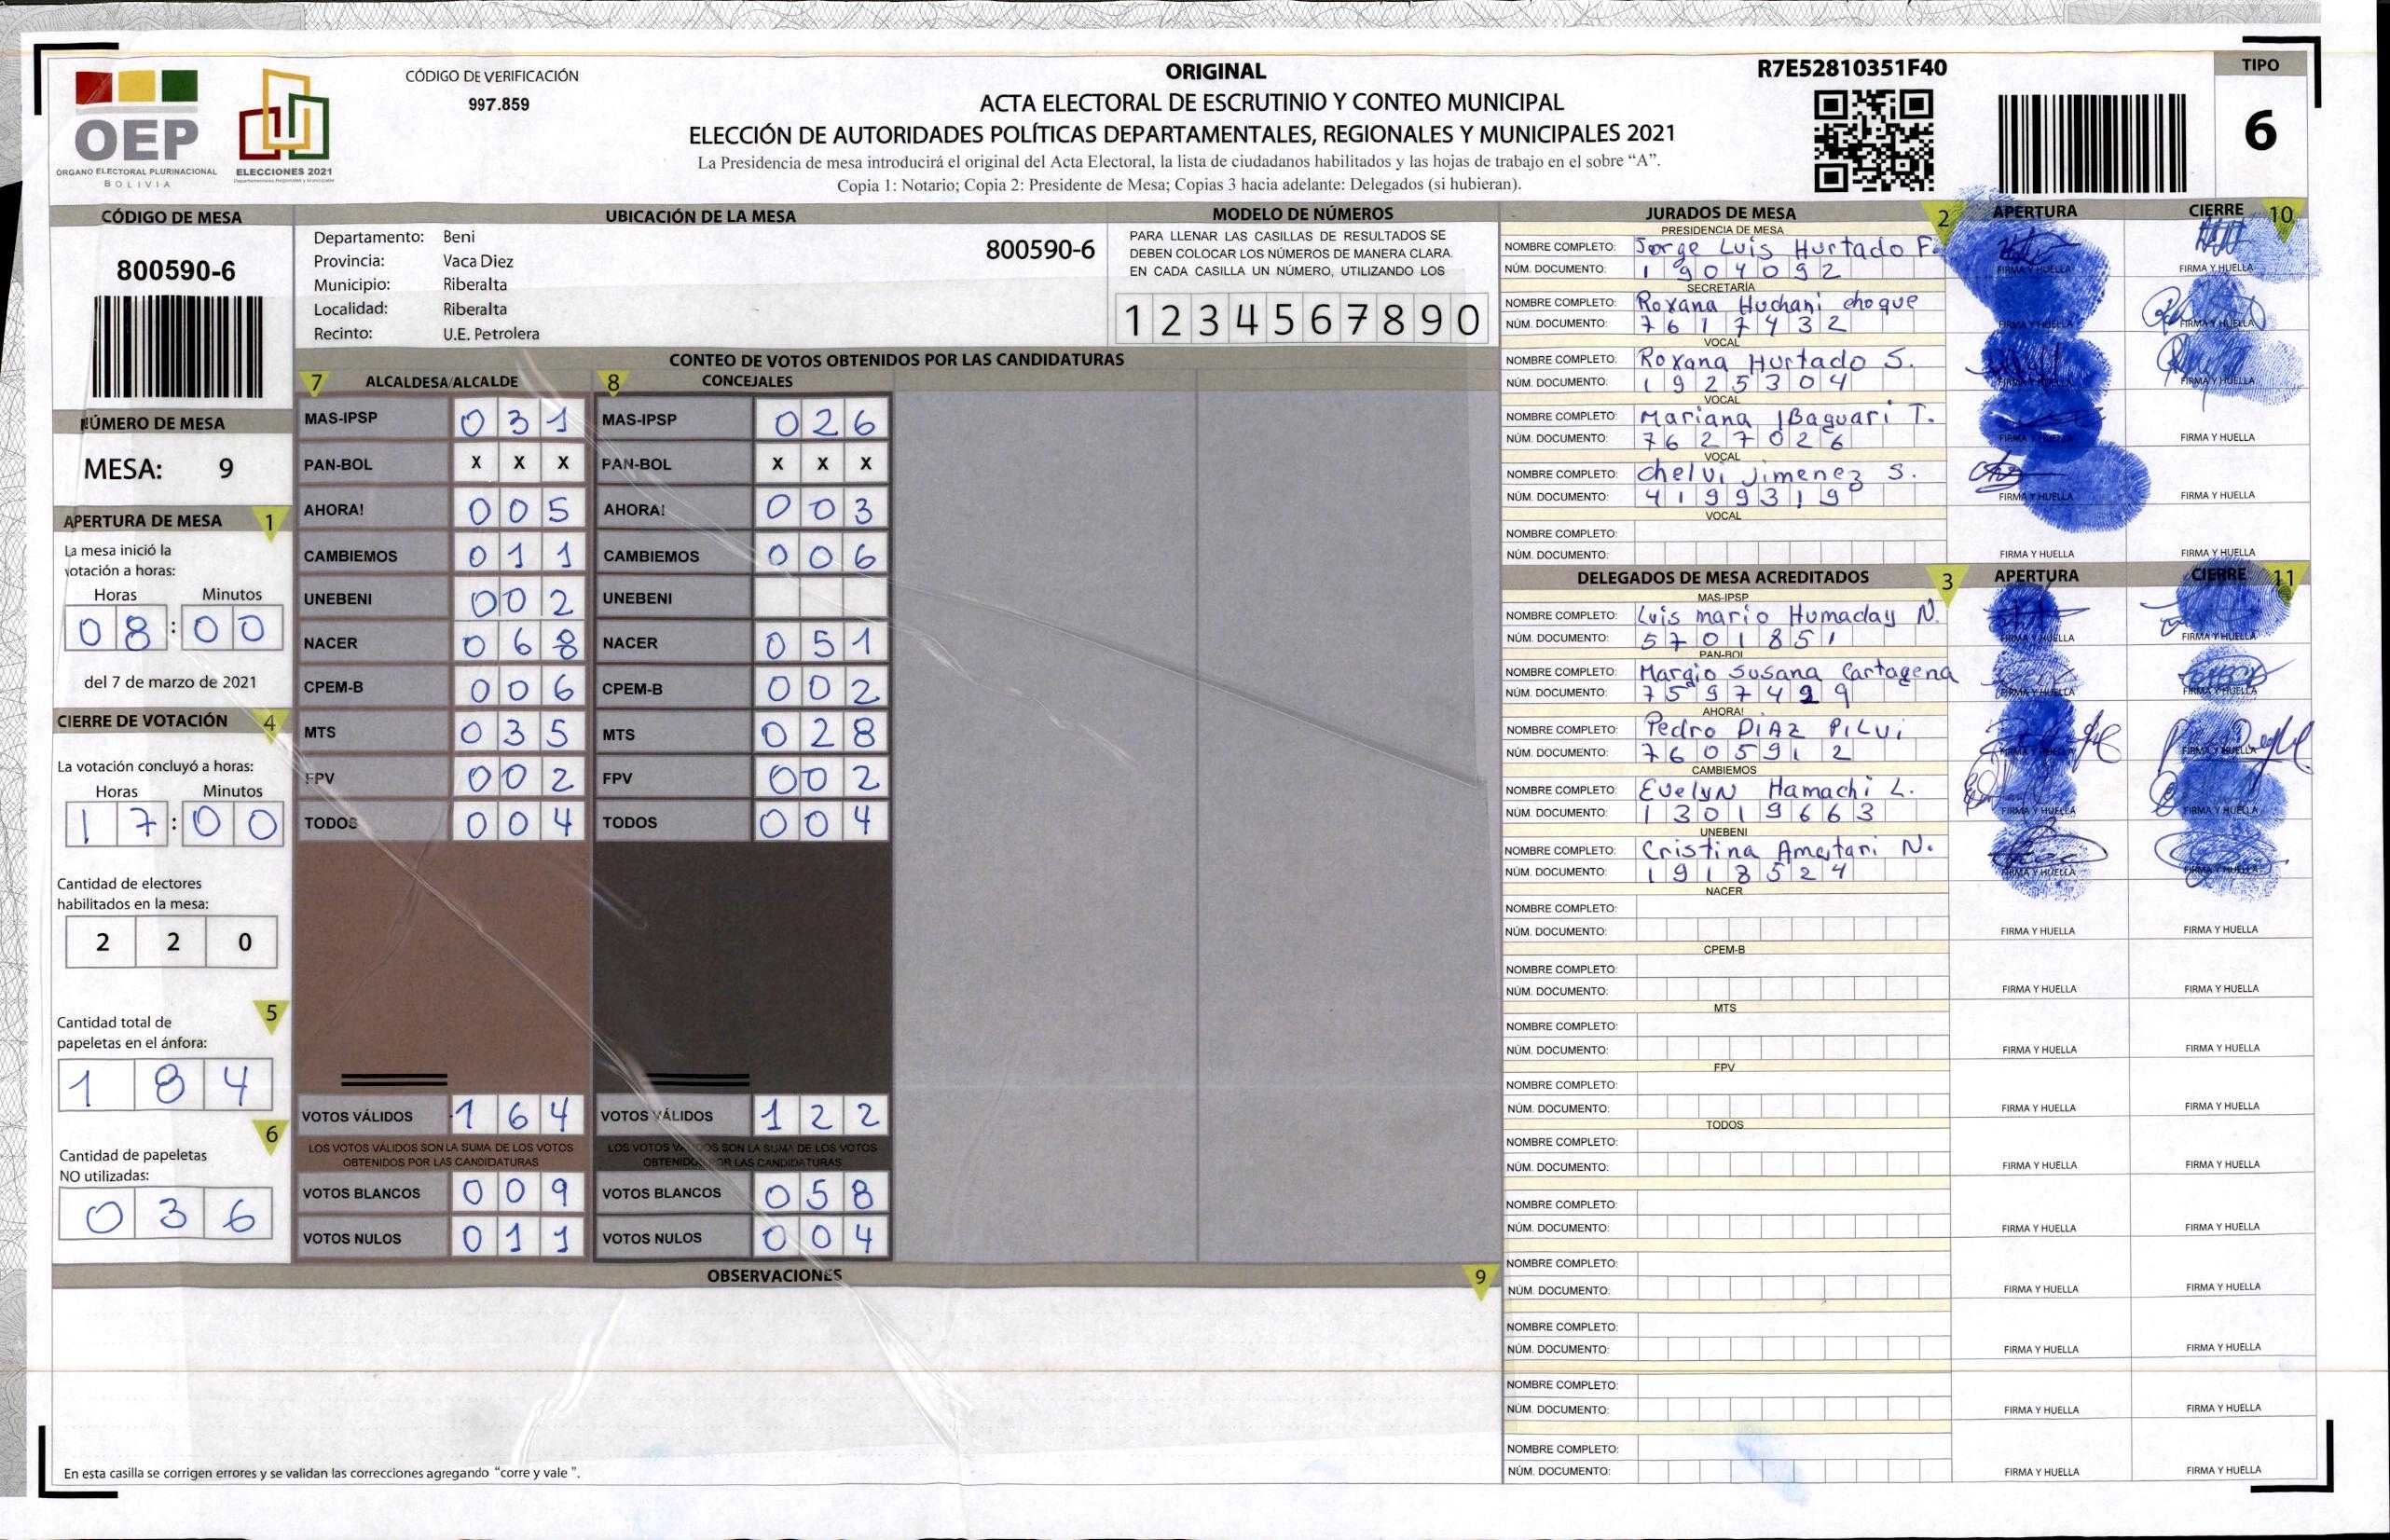 ORIGINAL
ACTA ELECTORAL DE ESCRUTINIO Y CONTEO MUNICIPAL
ELECCIÓN DE AUTORIDADES POLÍTICAS DEPARTAMENTALES, REGIONALES Y MUNICIPALES 2021
La Presidencia de mesa introducirá el original del Acta Electoral, la lista de ciudadanos habilitados y las hojas de trabajo en el sobre “A”.
Copia 1: Notario; Copia 2: Presidente de Mesa; Copias 3 hacia adelante: Delegados (si hubieran).
OEP
ÓRGANO ELECTORAL PLURINACIONAL
BOLIVIA
ELECCIONES 2021
CÓDIGO DE VERIFICACIÓN
997.859
R7E52810351F40
TIPO
6
CÓDIGO DE MESA
800590-6
NÚMERO DE MESA
MESA: 9
APERTURA DE MESA 1
La mesa inició la
votación a horas:
Horas Minutos
08:00
del 7 de marzo de 2021
CIERRE DE VOTACIÓN 4
La votación concluyó a horas:
Horas Minutos
17:00
Cantidad de electores
habilitados en la mesa:
2 2 0
5
Cantidad total de
papeletas en el ánfora:
1 8 4
6
Cantidad de papeletas
NO utilizadas:
0 3 6
UBICACIÓN DE LA MESA
Departamento: Beni
800590-6
Provincia: Vaca Diez
Municipio: Riberalta
Localidad: Riberalta
Recinto: U.E. Petrolera
MODELO DE NÚMEROS
PARA LLENAR LAS CASILLAS DE RESULTADOS SE
DEBEN COLOCAR LOS NÚMEROS DE MANERA CLARA.
EN CADA CASILLA UN NÚMERO, UTILIZANDO LOS
1 2 3 4 5 6 7 8 9 0
CONTEO DE VOTOS OBTENIDOS POR LAS CANDIDATURAS
7 ALCALDESA/ALCALDE 8 CONCEJALES
MAS-IPSP 0 3 1 MAS-IPSP 0 2 6
PAN-BOL X X X PAN-BOL X X X
AHORA! 0 0 5 AHORA! 0 0 3
CAMBIEMOS 0 1 1 CAMBIEMOS 0 0 6
UNEBENI 0 0 2 UNEBENI
NACER 0 6 8 NACER 0 5 1
CPEM-B 0 0 6 CPEM-B 0 0 2
MTS 0 3 5 MTS 0 2 8
FPV 0 0 2 FPV 0 0 2
TODOS 0 0 4 TODOS 0 0 4
VOTOS VÁLIDOS 1 6 4 VOTOS VÁLIDOS 1 2 2
LOS VOTOS VÁLIDOS SON LA SUMA DE LOS VOTOS LOS VOTOS VÁLIDOS SON LA SUMA DE LOS VOTOS
OBTENIDOS POR LAS CANDIDATURAS OBTENIDOS POR LAS CANDIDATURAS
VOTOS BLANCOS 0 0 9 VOTOS BLANCOS 0 5 8
VOTOS NULOS 0 1 1 VOTOS NULOS 0 0 4
OBSERVACIONES 9
En esta casilla se corrigen errores y se validan las correcciones agregando “corre y vale ”.
JURADOS DE MESA 2 APERTURA CIERRE 10
PRESIDENCIA DE MESA
NOMBRE COMPLETO: Jorge Luis Hurtado F.
NÚM. DOCUMENTO: 1904092 FIRMA Y HUELLA FIRMA Y HUELLA
SECRETARÍA
NOMBRE COMPLETO: Roxana Huchani choque
NÚM. DOCUMENTO: 7617432 FIRMA Y HUELLA FIRMA Y HUELLA
VOCAL
NOMBRE COMPLETO: Roxana Hurtado S.
NÚM. DOCUMENTO: 1925304 FIRMA Y HUELLA FIRMA Y HUELLA
VOCAL
NOMBRE COMPLETO: Mariana IBaguari T.
NÚM. DOCUMENTO: 7627026 FIRMA Y HUELLA FIRMA Y HUELLA
VOCAL
NOMBRE COMPLETO: Chelvi Jimenez S.
NÚM. DOCUMENTO: 4199319 FIRMA Y HUELLA FIRMA Y HUELLA
VOCAL
NOMBRE COMPLETO:
NÚM. DOCUMENTO: FIRMA Y HUELLA FIRMA Y HUELLA
DELEGADOS DE MESA ACREDITADOS 3 APERTURA CIERRE 11
MAS-IPSP
NOMBRE COMPLETO: Luis mario Humaday N.
NÚM. DOCUMENTO: 5701851 FIRMA Y HUELLA FIRMA Y HUELLA
PAN-BOL
NOMBRE COMPLETO: Margio Susana Cartagena
NÚM. DOCUMENTO: 7597499 FIRMA Y HUELLA FIRMA Y HUELLA
AHORA!
NOMBRE COMPLETO: Pedro DIAZ PILUi
NÚM. DOCUMENTO: 7605912 FIRMA Y HUELLA FIRMA Y HUELLA
CAMBIEMOS
NOMBRE COMPLETO: EvelyN Hamachi L.
NÚM. DOCUMENTO: 13019663 FIRMA Y HUELLA FIRMA Y HUELLA
UNEBENI
NOMBRE COMPLETO: Cristina Amatari N.
NÚM. DOCUMENTO: 1918524 FIRMA Y HUELLA FIRMA Y HUELLA
NACER
NOMBRE COMPLETO:
NÚM. DOCUMENTO: FIRMA Y HUELLA FIRMA Y HUELLA
CPEM-B
NOMBRE COMPLETO:
NÚM. DOCUMENTO: FIRMA Y HUELLA FIRMA Y HUELLA
MTS
NOMBRE COMPLETO:
NÚM. DOCUMENTO: FIRMA Y HUELLA FIRMA Y HUELLA
FPV
NOMBRE COMPLETO:
NÚM. DOCUMENTO: FIRMA Y HUELLA FIRMA Y HUELLA
TODOS
NOMBRE COMPLETO:
NÚM. DOCUMENTO: FIRMA Y HUELLA FIRMA Y HUELLA
NOMBRE COMPLETO:
NÚM. DOCUMENTO: FIRMA Y HUELLA FIRMA Y HUELLA
NOMBRE COMPLETO:
NÚM. DOCUMENTO: FIRMA Y HUELLA FIRMA Y HUELLA
NOMBRE COMPLETO:
NÚM. DOCUMENTO: FIRMA Y HUELLA FIRMA Y HUELLA
NOMBRE COMPLETO:
NÚM. DOCUMENTO: FIRMA Y HUELLA FIRMA Y HUELLA
NOMBRE COMPLETO:
NÚM. DOCUMENTO: FIRMA Y HUELLA FIRMA Y HUELLA